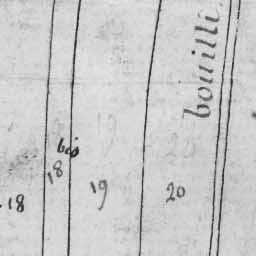 bouilli
bis
18
18
19
20